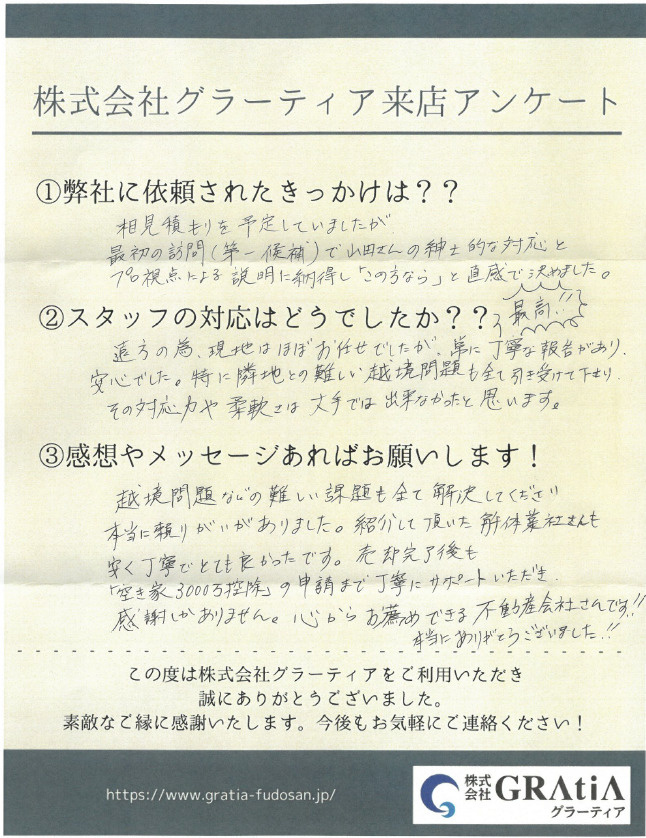 株式会社グラーティア来店アンケート
①弊社に依頼されたきっかけは？？
相見積もりを予定していましたが
最初の訪問(第一候補)で山田さんの紳士的な対応と
プロ視点による説明に納得し「この方なら」と直感で決めました。
②スタッフの対応はどうでしたか？？
最高!!
遠方の為、現地はほぼお任せでしたが、常に丁寧な報告があり、
安心でした。特に隣地との難しい越境問題も全て引き受けて下さり
その対応力や柔軟さは大手では出来なかったと思います。
③感想やメッセージあればお願いします！
越境問題などの難しい課題も全て解決してくださり
本当に頼りがいがありました。紹介して頂いた解体業社さんも
安く丁寧でとても良かったです。売却完了後も
「空き家3000万控除」の申請まで丁寧にサポートいただき、
感謝しかありません。心からお薦めできる不動産会社さんです!!
本当にありがとうございました!!
この度は株式会社グラーティアをご利用いただき
誠にありがとうございました。
素敵なご縁に感謝いたします。今後もお気軽にご連絡ください！
https://www.gratia-fudosan.jp/
株式会社 GRAtiA
グラーティア